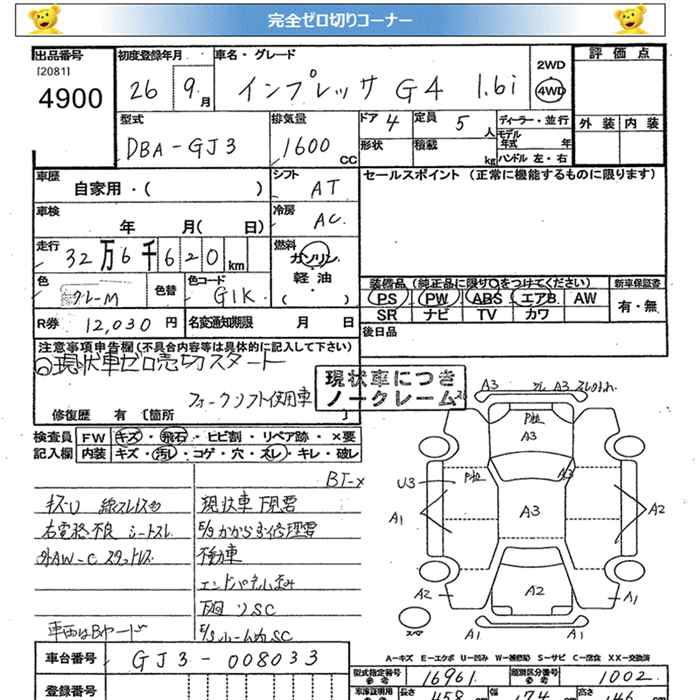 完全ゼロ切りコーナー
出品番号 初度登録年月 車名・グレード 2WD 評価点
[2081]
4900 26 9月 インプレッサ G4 1.6i 4WD
型式 排気量 ドア 4 定員 5人 ディーラー・並行 外装 内装
DBA-GJ3 1600cc 形状 積載 kg モデル年式 年
ハンドル 左・右
車歴 自家用・( ) シフト AT セールスポイント (正常に機能するものに限ります)
車検 年 月( 日) 冷房 AC
走行 32万6千620km 燃料 ガソリン
軽油
( )
色 色替 色コード G1K 装備品 (純正品に限り○をつけてください) 新車保証書
PS PW ABS エアB AW 有・無
SR ナビ TV カワ
R券 12,030円 名変通知期限 月 日 後日品
注意事項申告欄(不具合内容等は具体的に記入して下さい)
現状車ゼロ売切スタート
フォークリフト使用車
現状車につき
ノークレーム
修復歴 有 [箇所
検査員 FW キズ・飛石・ヒビ割・リペア跡・×要
記入欄 内装 キズ・汚レ・コゲ・穴・スレ・キレ・破レ
BT-×
現状車 下見要
シートスレ
外AW-C スタッドレス 不動車
下回りSC
車両はBヤード
A3 A3
P飛 A3
U3 P飛 A3
A1 A3 A2
A2 A2 A1
A1 A1
スペア
A-キズ E-エクボ U-凹み W-補修跡 S-サビ C-腐食 XX-交換済
車台番号 GJ3-008033
型式指定番号 16961 類別区分番号 1002
参考 参考
登録番号
長さ 458 幅 174 高さ 146